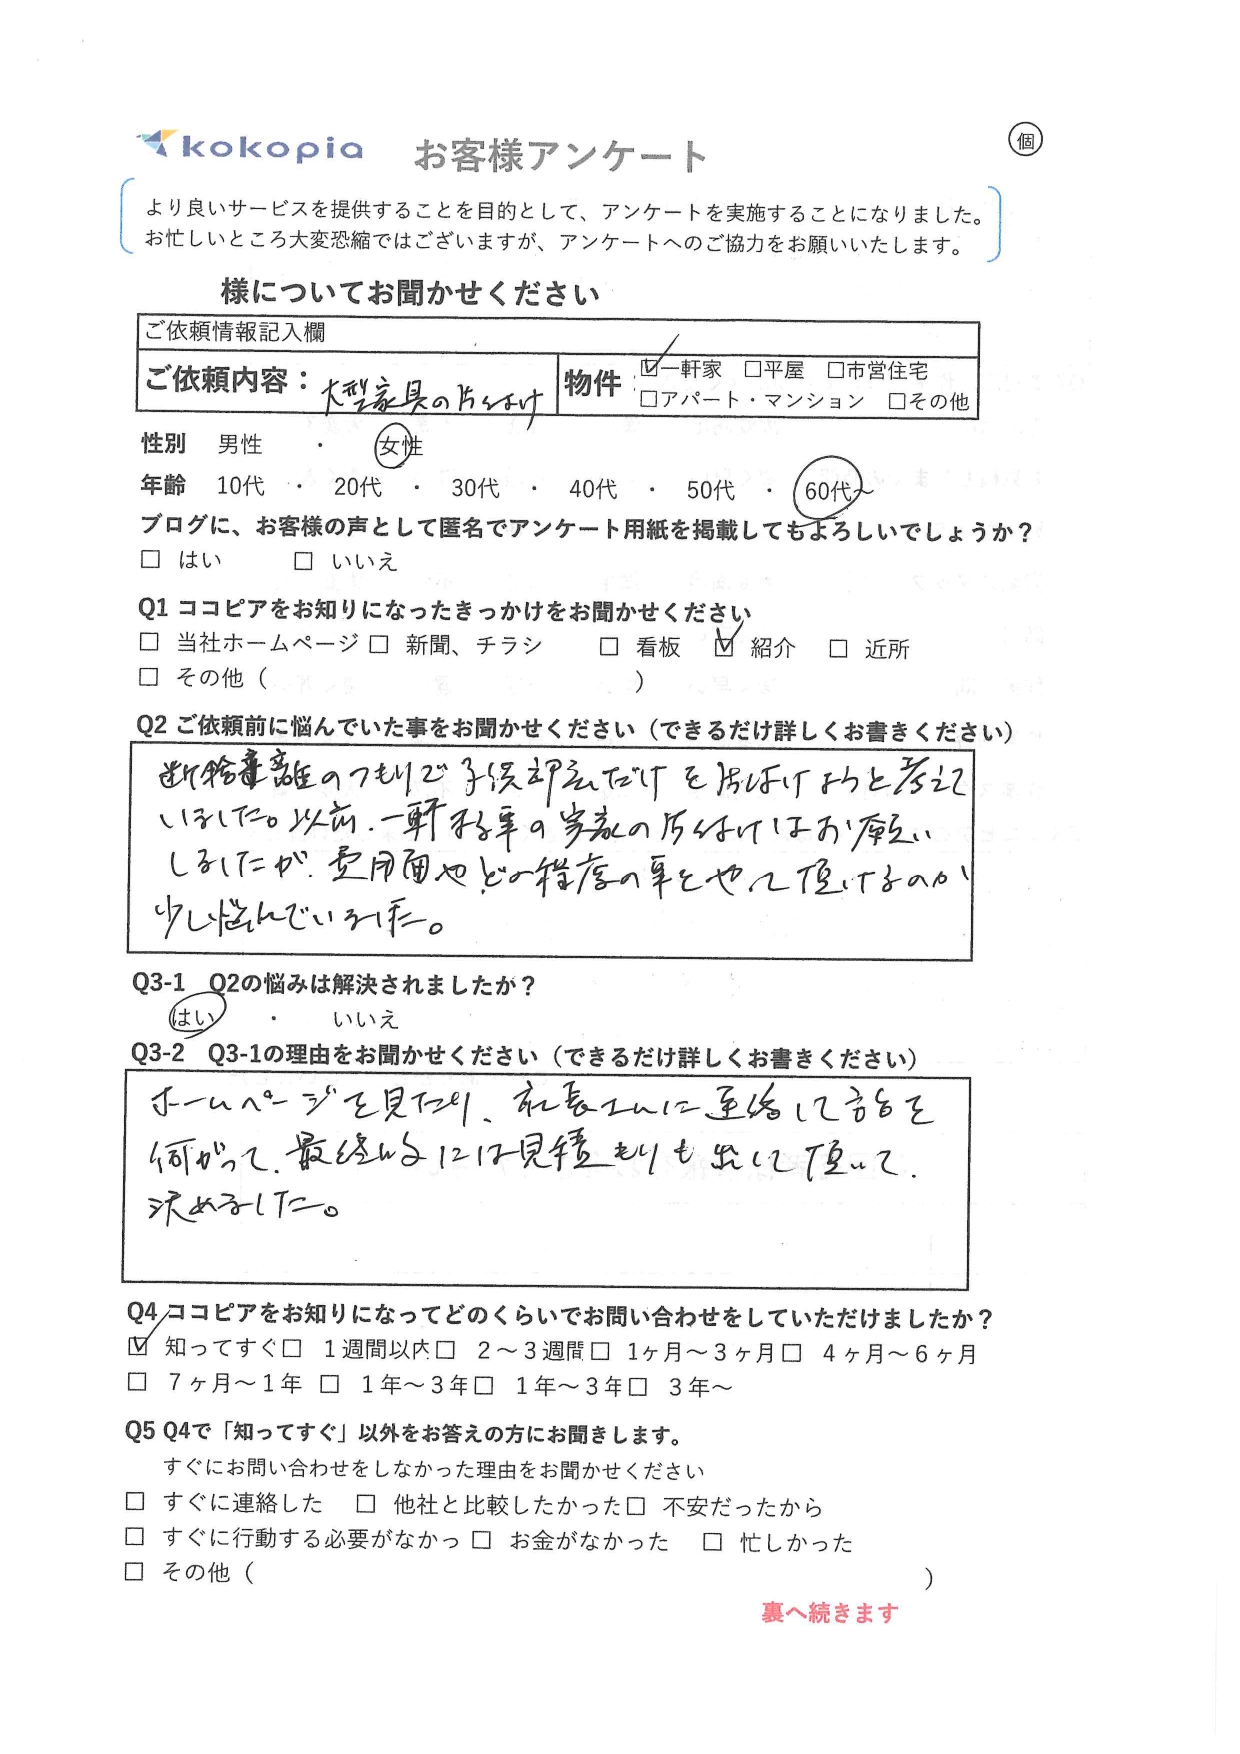 kokopia お客様アンケート
個
より良いサービスを提供することを目的として、アンケートを実施することになりました。
お忙しいところ大変恐縮ではございますが、アンケートへのご協力をお願いいたします。
様についてお聞かせください
ご依頼情報記入欄
ご依頼内容：大型家具の片付け
物件：☑一軒家 □平屋 □市営住宅
□アパート・マンション □その他
性別 男性 ・ 女性
年齢 10代 ・ 20代 ・ 30代 ・ 40代 ・ 50代 ・ 60代～
ブログに、お客様の声として匿名でアンケート用紙を掲載してもよろしいでしょうか？
□ はい □ いいえ
Q1 ココピアをお知りになったきっかけをお聞かせください
□ 当社ホームページ □ 新聞、チラシ □ 看板 ☑ 紹介 □ 近所
□ その他（ ）
Q2 ご依頼前に悩んでいた事をお聞かせください（できるだけ詳しくお書きください）
断捨離のつもりで子供部屋だけを片付けようと考えて
いました。以前、一軒まる事の実家の片付けはお願い
しましたが、費用面やどの程度の事をやって頂けるのか
少し悩んでいました。
Q3-1 Q2の悩みは解決されましたか？
はい ・ いいえ
Q3-2 Q3-1の理由をお聞かせください（できるだけ詳しくお書きください）
ホームページを見たり、社長さんに連絡して話を
伺がって、最終的には見積もりも出して頂いて、
決めました。
Q4 ココピアをお知りになってどのくらいでお問い合わせをしていただけましたか？
☑ 知ってすぐ□ 1週間以内□ 2～3週間□ 1ヶ月～3ヶ月□ 4ヶ月～6ヶ月
□ 7ヶ月～1年 □ 1年～3年□ 1年～3年□ 3年～
Q5 Q4で「知ってすぐ」以外をお答えの方にお聞きします。
すぐにお問い合わせをしなかった理由をお聞かせください
□ すぐに連絡した □ 他社と比較したかった□ 不安だったから
□ すぐに行動する必要がなかっ □ お金がなかった □ 忙しかった
□ その他（ ）
裏へ続きます